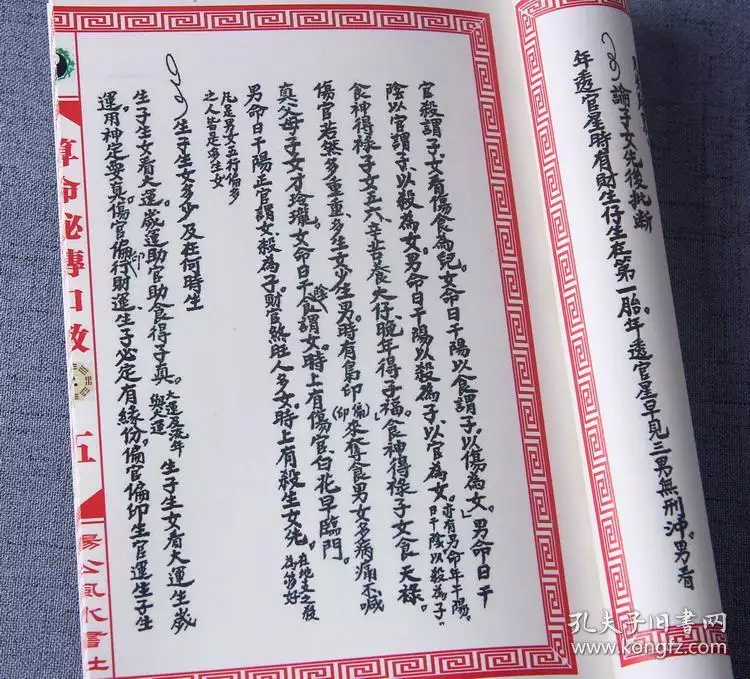 論子女先後批斷
年透官星時有財生仔生在第一胎。年透官星早見三男無刑沖。男看
官殺謂子女看傷食為兒。女命日干陽以食謂子。以傷為女。」男命日干
陰以官謂子以殺為女。男命日干陽以殺為子以官為女。亦有男命年干陽。日干陰以殺為子。
食神得祿子女五六。辛苦養大仔，晚年得子福。食神得祿子女食天祿。
傷官若然多重重、多生女少生男。時有梟印(偏印)來奪食男女多病痛不喊
真父母子女才玲瓏。女命日干陰食謂女。時上有傷官、白花早臨門。
男命日干陽正官謂女殺為子財官煞旺人多女。時上有殺生女先。在地支之殺為第好
凡是男女五行偏多
之人皆定多生女
生子生女多少及在何時生
生子生女看大運。歲運助官助食得子真。大運是流年與大運 生子生女看大運生歲
運用神定要真。傷官偏印行財運生子必定有緣份。偏官偏印生官運生子生
算命秘傳口教
五
楊公風水書社
孔夫子旧书网
www.kongfz.com